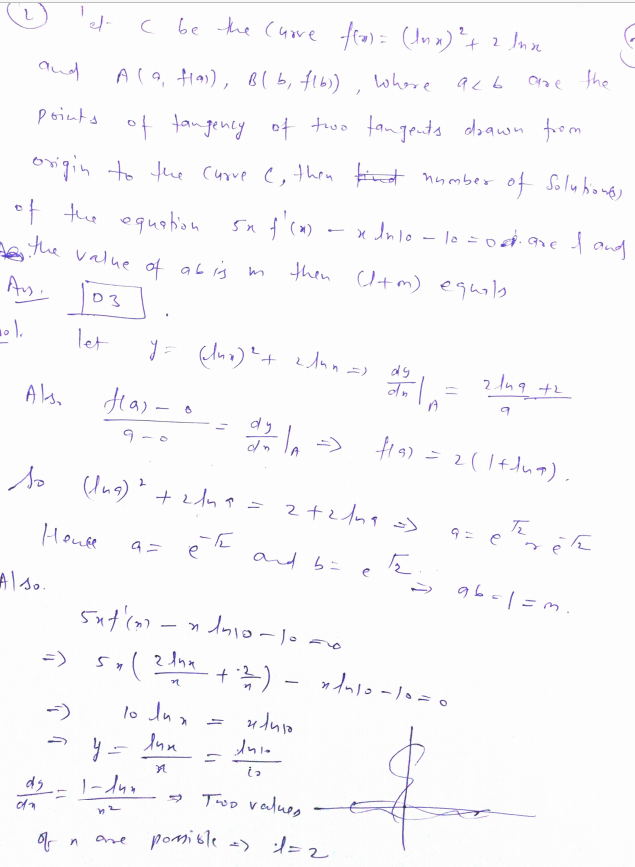 (2) Let C be the curve f(x) = (ln x)² + 2 ln x
and A(a, f(a)), B(b, f(b)), where a < b are the
points of tangency of two tangents drawn from
origin to the curve C, then number of solution(s)
of the equation 5x f'(x) - x ln10 - 10 = 0 are l and
the value of ab is m then (l+m) equals
Ans. 03
sol. let y = (ln x)² + 2 ln x => dy/dx|A = (2 ln a + 2)/a
Also (f(a) - 0)/(a - 0) = dy/dx|A => f(a) = 2(1 + ln a).
So (ln a)² + 2 ln a = 2 + 2 ln a => a = e^√2 or e^-√2
Hence a = e^-√2 and b = e^√2 => ab = 1 = m.
Also.
5x f'(x) - x ln10 - 10 = 0
=> 5x (2 ln x/x + 2/x) - x ln10 - 10 = 0
=> 10 ln x = x ln10
=> y = ln x/x = ln10/10
dy/dx = (1 - ln x)/x² => Two values
of x are possible => l = 2